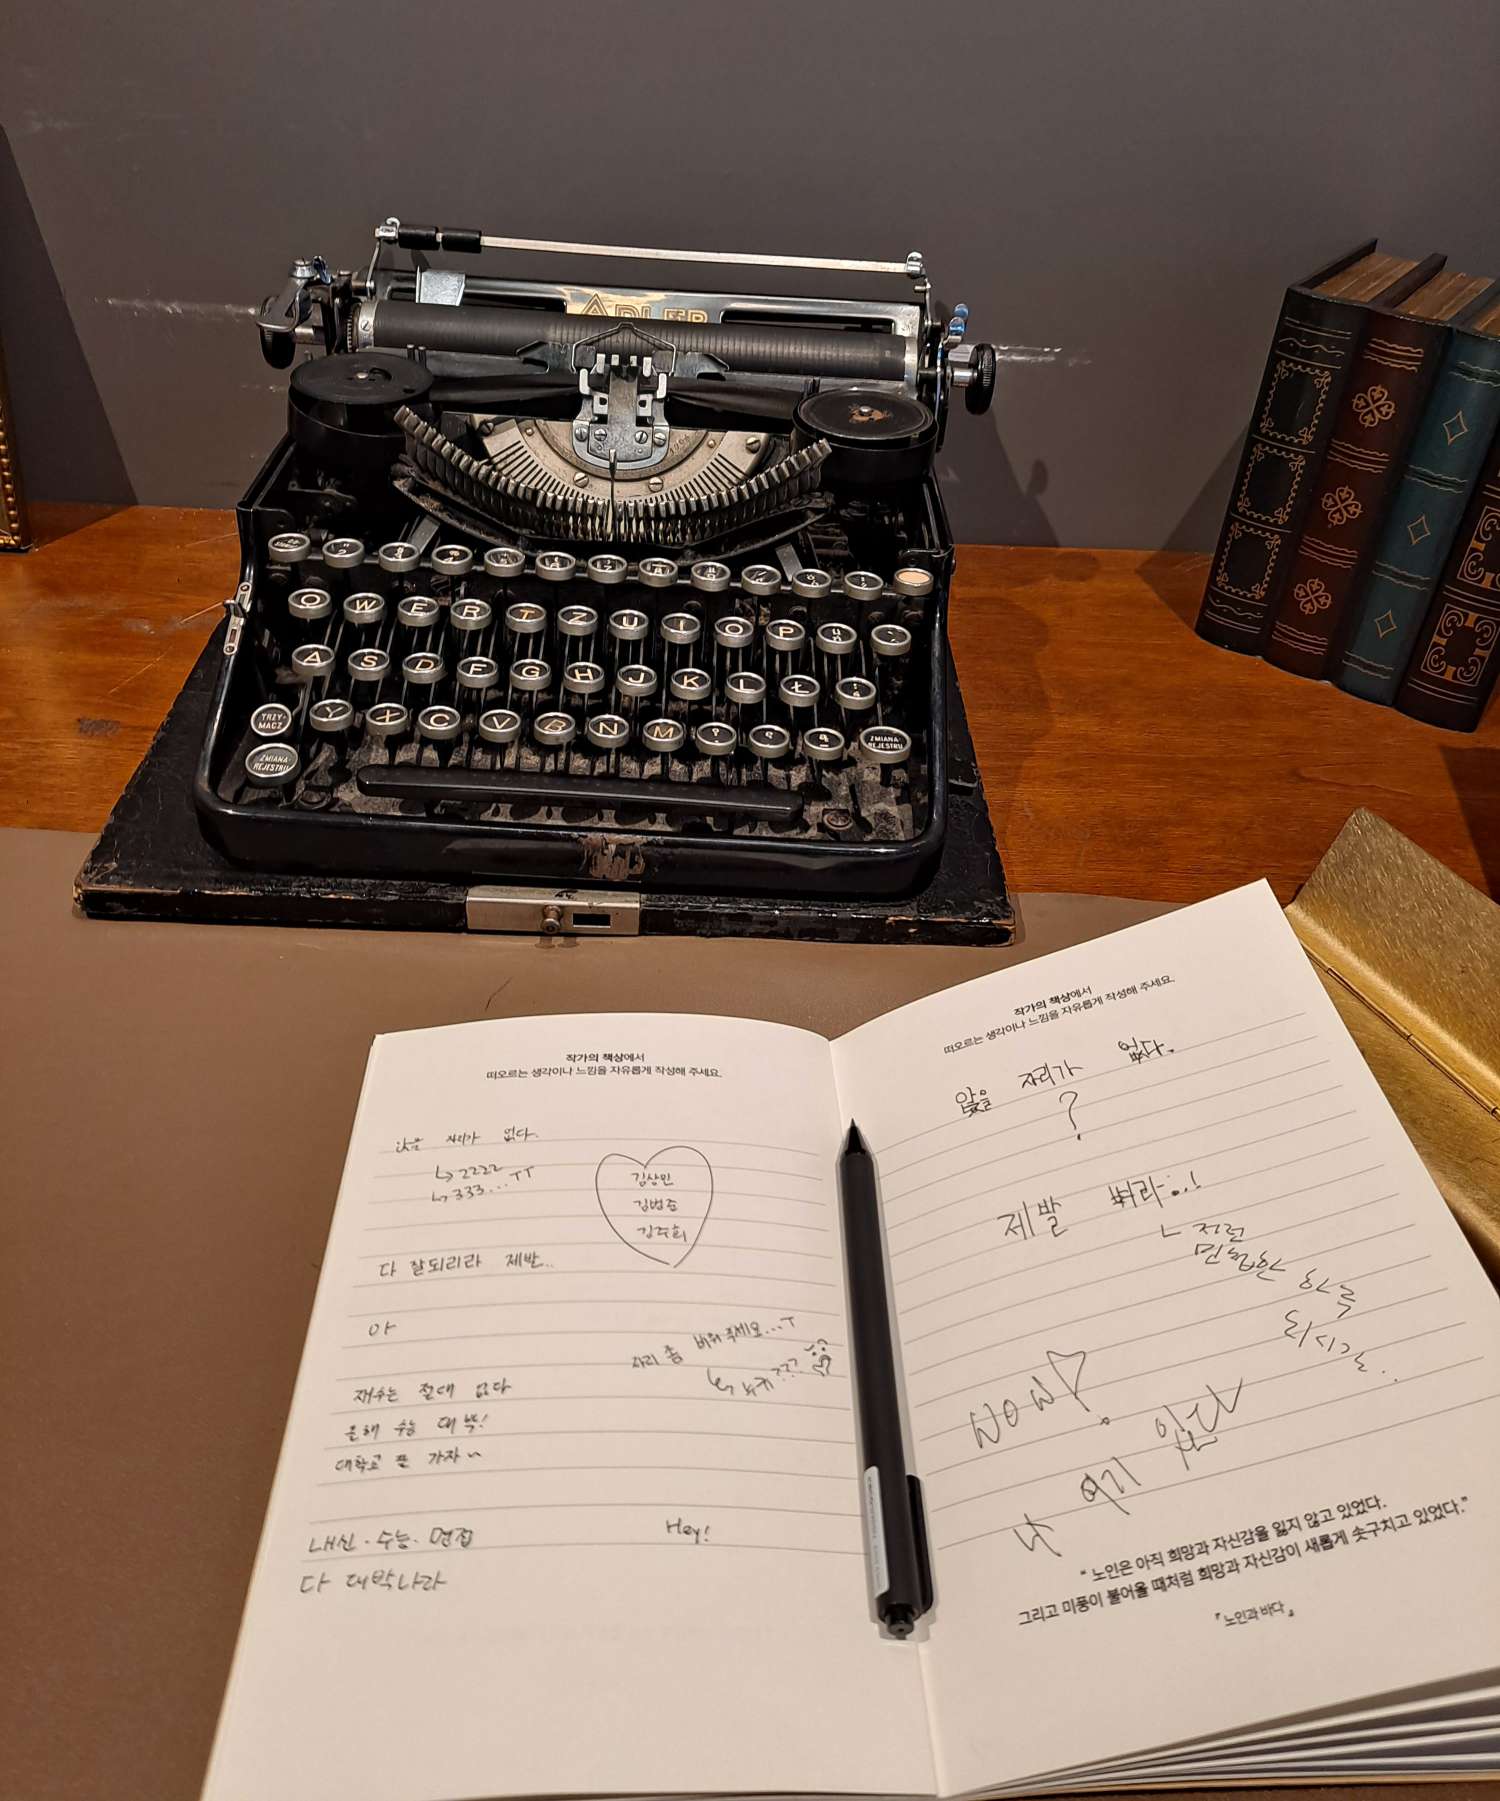 ADLER
2 3 4
Q W E R T Z U I O P
A S D F G H J K L Ł
TRZY-
MACZ
Y X C V B N M
ZMIANA
REJESTRU
ZMIANA
REJESTRU
작가의 책상에서
떠오르는 생각이나 느낌을 자유롭게 작성해 주세요.
앉을 자리가 없다.
↳ 2222
↳ 333... ㅜㅜ
김상민
김범준
김주희
다 잘되리라 제발..
야
자리 좀 비워주세요...ㅜ
↳ 누귀???
재수는 절대 없다
올해 수능 대박!
대학교 꼭 가자~
내신·수능·면접
다 대박나라
Hey!
작가의 책상에서
떠오르는 생각이나 느낌을 자유롭게 작성해 주세요.
앉을 자리가 없다.
?
제발
하루
되시길..
NOW!
나 여기 있다
“ 노인은 아직 희망과 자신감을 잃지 않고 있었다.
그리고 미풍이 불어올 때처럼 희망과 자신감이 새롭게 솟구치고 있었다.”
『노인과 바다』